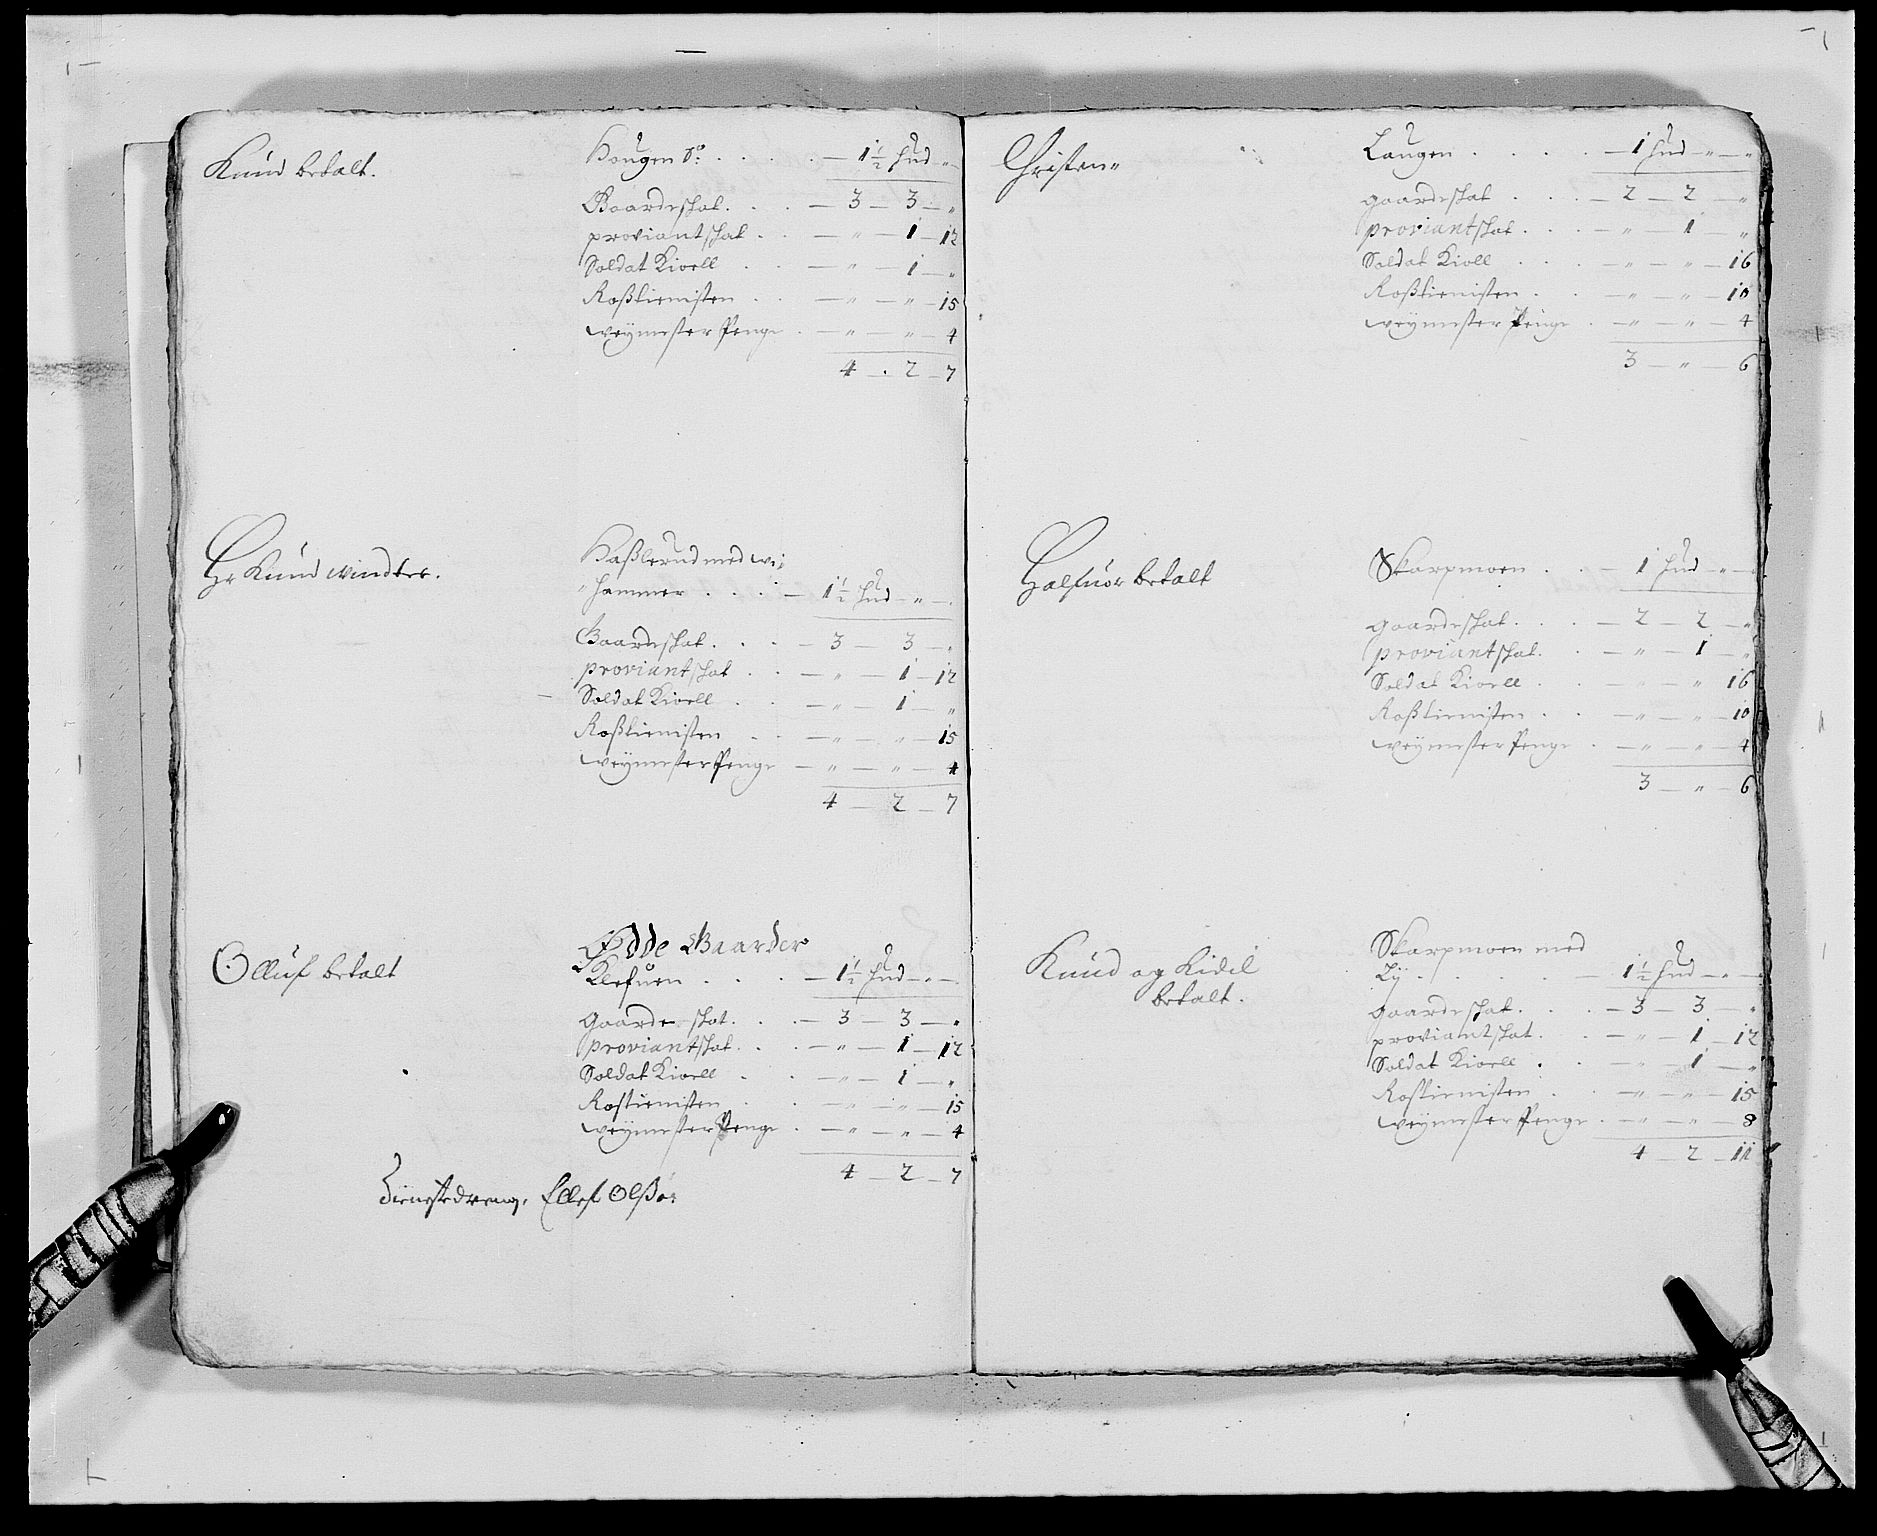 Knud betalt.
Hougen Sø: . . . . — 1½ hud „ —
Gaardeskat. . . — 3 — 3 — „
proviantskat . . — „ — 1 — 12
Soldat Kioell . . — „ — 1 — „
Roßtienisten . . — „ — „ — 15
weymester Penge . — „ — „ — 4
4 — 2 — 7
Hr Knud windter.
Haßlerud med wi:
„ hammer . . . . — 1½ hud — „ —
Gaardeskat. . . — 3 — 3 — „
proviantskat . . — „ — 1 — 12
Soldat Kioell . . — „ — 1 — „
Roßtienisten . . — „ — „ — 15
weymester Penge — „ — „ — 4
4 — 2 — 7
Olluf betalt
Ødde Gaarder
Klefuen . . . . — 1½ hud „ —
gaardeskat. . . — 3 — 3 — „
proviantskat. . . — „ — 1 — 12
Soldat Kioell . . — „ — 1 — „
Rostienisten . . — „ — „ — 15
weymester Penge . — „ — „ — 4
4 — 2 — 7
Tienstedreng, Ellef Olßø:
Christen „
Laugen . . . . — 1 hud — „ — „
gaardeskat . . . — 2 — 2 — „
proviantskat. . . — „ — 1 — „
Soldat Kioll . . . — „ — „ — 16
Roßtienisten . . — „ — „ — 10
weymester Penge . — „ — „ — 4
3 — „ — 6
Halfuor betalt
Skarpmoen . . — 1 hud — „ —
gaardeskat. . . — 2 — 2 — „
proviantskat. . — „ — 1 — „
Soldat Kioell . . — „ — „ 16
Roßtienisten . . — „ — „ — 10
weymester Penge . — „ — „ — 4
3 — „ — 6
Knud og Kidil
betalt.
Skarpmoen med
Ly . . . . . — 1½ hud — „ —
gaardeskat. . . — 3 — 3 — „
proviantskat. . — „ — 1 — 12
Soldat Kioell . . — „ — 1 — „
Rostienisten . . — „ — „ — 15
weymester Penge . — „ — „ — 8
4 — 2 — 11